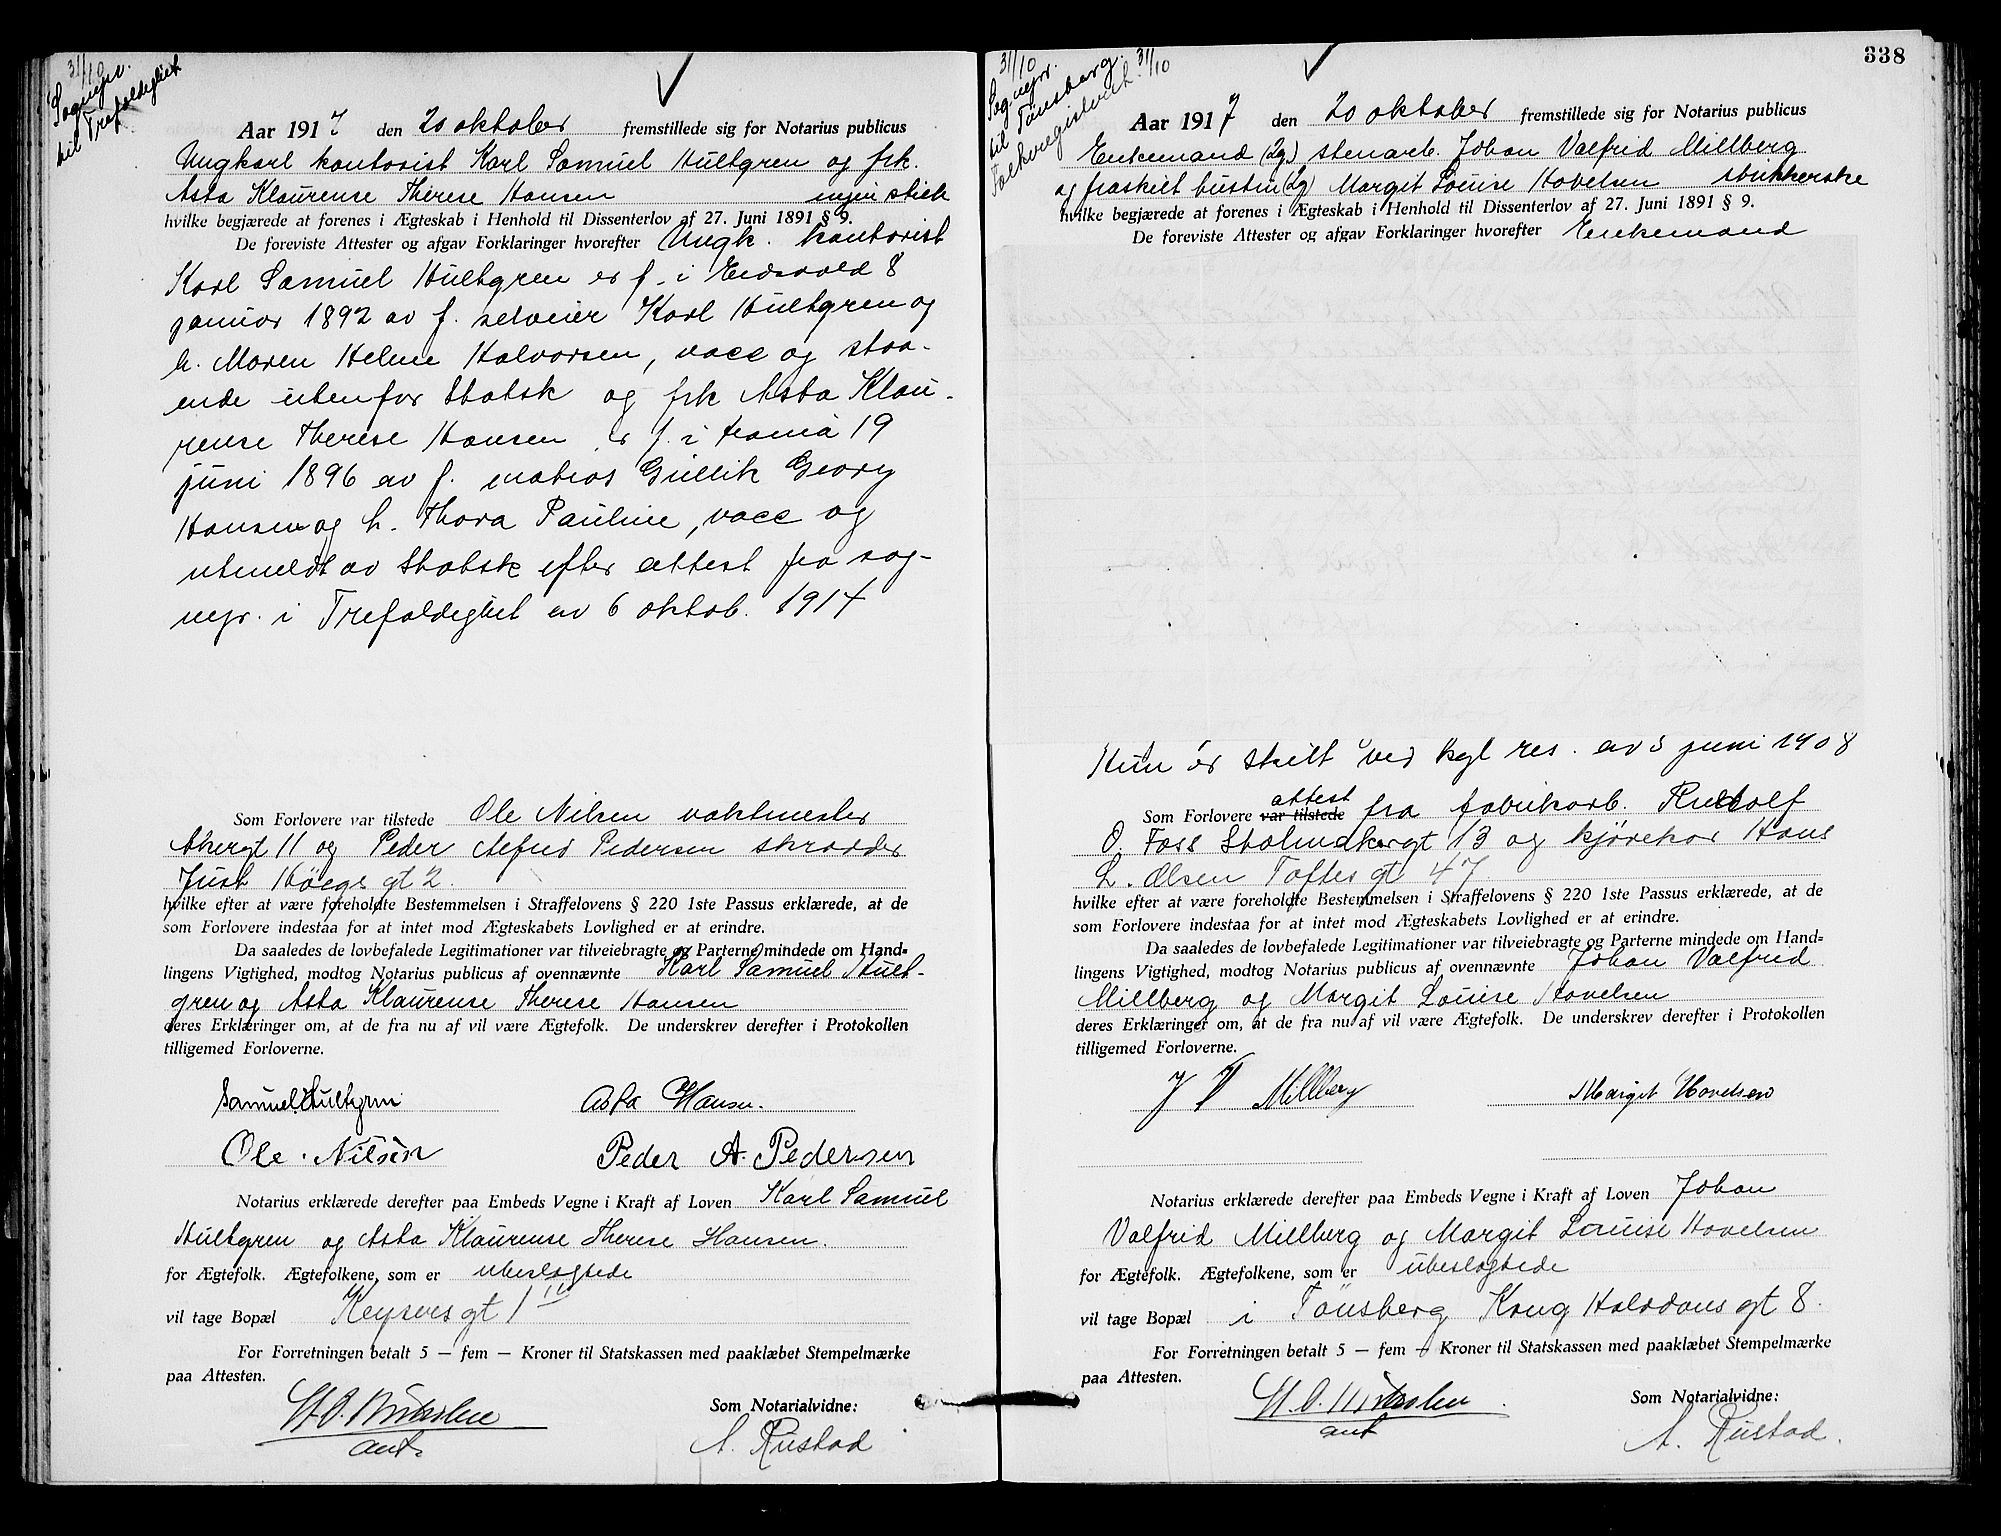 31/10
Sognepr.
til Trefoldighet
Aar 1917 den 20 oktober fremstillede sig for Notarius publicus
Ungkarl kontorist Karl Samuel Hultgren og frk.
Asta Klaurense Therese Hansen
hvilke begjærede at forenes i Ægteskab i Henhold til Dissenterlov af 27. Juni 1891 § 9.
De foreviste Attester og afgav Forklaringer hvorefter Ungk. kontorist
Karl Samuel Hultgren er f. i Eidsvold 8
januar 1892 av f. selveier Karl Hultgren og
h. Maren Helene Halvorsen, vacc og staa-
ende utenfor Statsk og frk Asta Klau-
rense Therese Hansen er f. i 19
juni 1896 av f. matros Gullik Georg
Hansen og h. Thora Pauline, vacc og
utmeldt av Statsk efter attest fra sog-
nepr. i Trefoldighet av 6 oktob. 1914
Som Forlovere var tilstede Ole Nilsen vaktmester
Akergt 11 og Peder Alfred Pedersen skrædder
Just Høegs gt 2.
hvilke efter at være foreholdte Bestemmelsen i Straffelovens § 220 1ste Passus erklærede, at de
som Forlovere indestaa for at intet mod Ægteskabets Lovlighed er at erindre.
Da saaledes de lovbefalede Legitimationer var tilveiebragte og Parterne mindede om Hand-
lingens Vigtighed, modtog Notarius publicus af ovennævnte Karl Samuel Hult-
gren og Asta Klaurense Therese Hansen
deres Erklæringer om, at de fra nu af vil være Ægtefolk. De underskrev derefter i Protokollen
tilligemed Forloverne.
Samuel Hultgren Asta Hansen.
Ole Nilsen Peder A. Pedersen
Notarius erklærede derefter paa Embeds Vegne i Kraft af Loven Karl Samuel
Hultgren og Asta Klaurense Therese Hansen.
for Ægtefolk. Ægtefolkene, som er ubeslagtede
vil tage Bopæl Keysersgt 1
For Forretningen betalt 5 — fem — Kroner til Statskassen med paaklæbet Stempelmærke
paa Attesten.
Som Notarialvidne:
A. Rustad
338
31/10
Sognepr.
til Tønsberg. 31/10
Folkeregistret
Aar 1917 den 20 oktober fremstillede sig for Notarius publicus
Enkemand (2g.) stenarb. Johan Valfrid Millberg
og fraskilt hustru (2g) Margit Louise Hovelsen
hvilke begjærede at forenes i Ægteskab i Henhold til Dissenterlov af 27. Juni 1891 § 9.
De foreviste Attester og afgav Forklaringer hvorefter Enkemand
Hun er skilt ved kgl res. av 5 juni 1908
attest
Som Forlovere var tilstede fra fabrikarb. Rudolf
O. Foss Stolmakergt 13 og kjørekar Hans
L. Olsen Toftes gt 47
hvilke efter at være foreholdte Bestemmelsen i Straffelovens § 220 1ste Passus erklærede, at de
som Forlovere indestaa for at intet mod Ægteskabets Lovlighed er at erindre.
Da saaledes de lovbefalede Legitimationer var tilveiebragte og Parterne mindede om Hand-
lingens Vigtighed, modtog Notarius publicus af ovennævnte Johan Valfrid
Millberg og Margit Louise Hovelsen
deres Erklæringer om, at de fra nu af vil være Ægtefolk. De underskrev derefter i Protokollen
tilligemed Forloverne.
J V Millberg Margit Hovelsen
Notarius erklærede derefter paa Embeds Vegne i Kraft af Loven Johan
Valfrid Millberg og Margit Louise Hovelsen
for Ægtefolk. Ægtefolkene, som er ubeslagtede
vil tage Bopæl i Tönsberg Kong Halvdans gt 8.
For Forretningen betalt 5 — fem — Kroner til Statskassen med paaklæbet Stempelmærke
paa Attesten.
Som Notarialvidne:
A. Rustad.